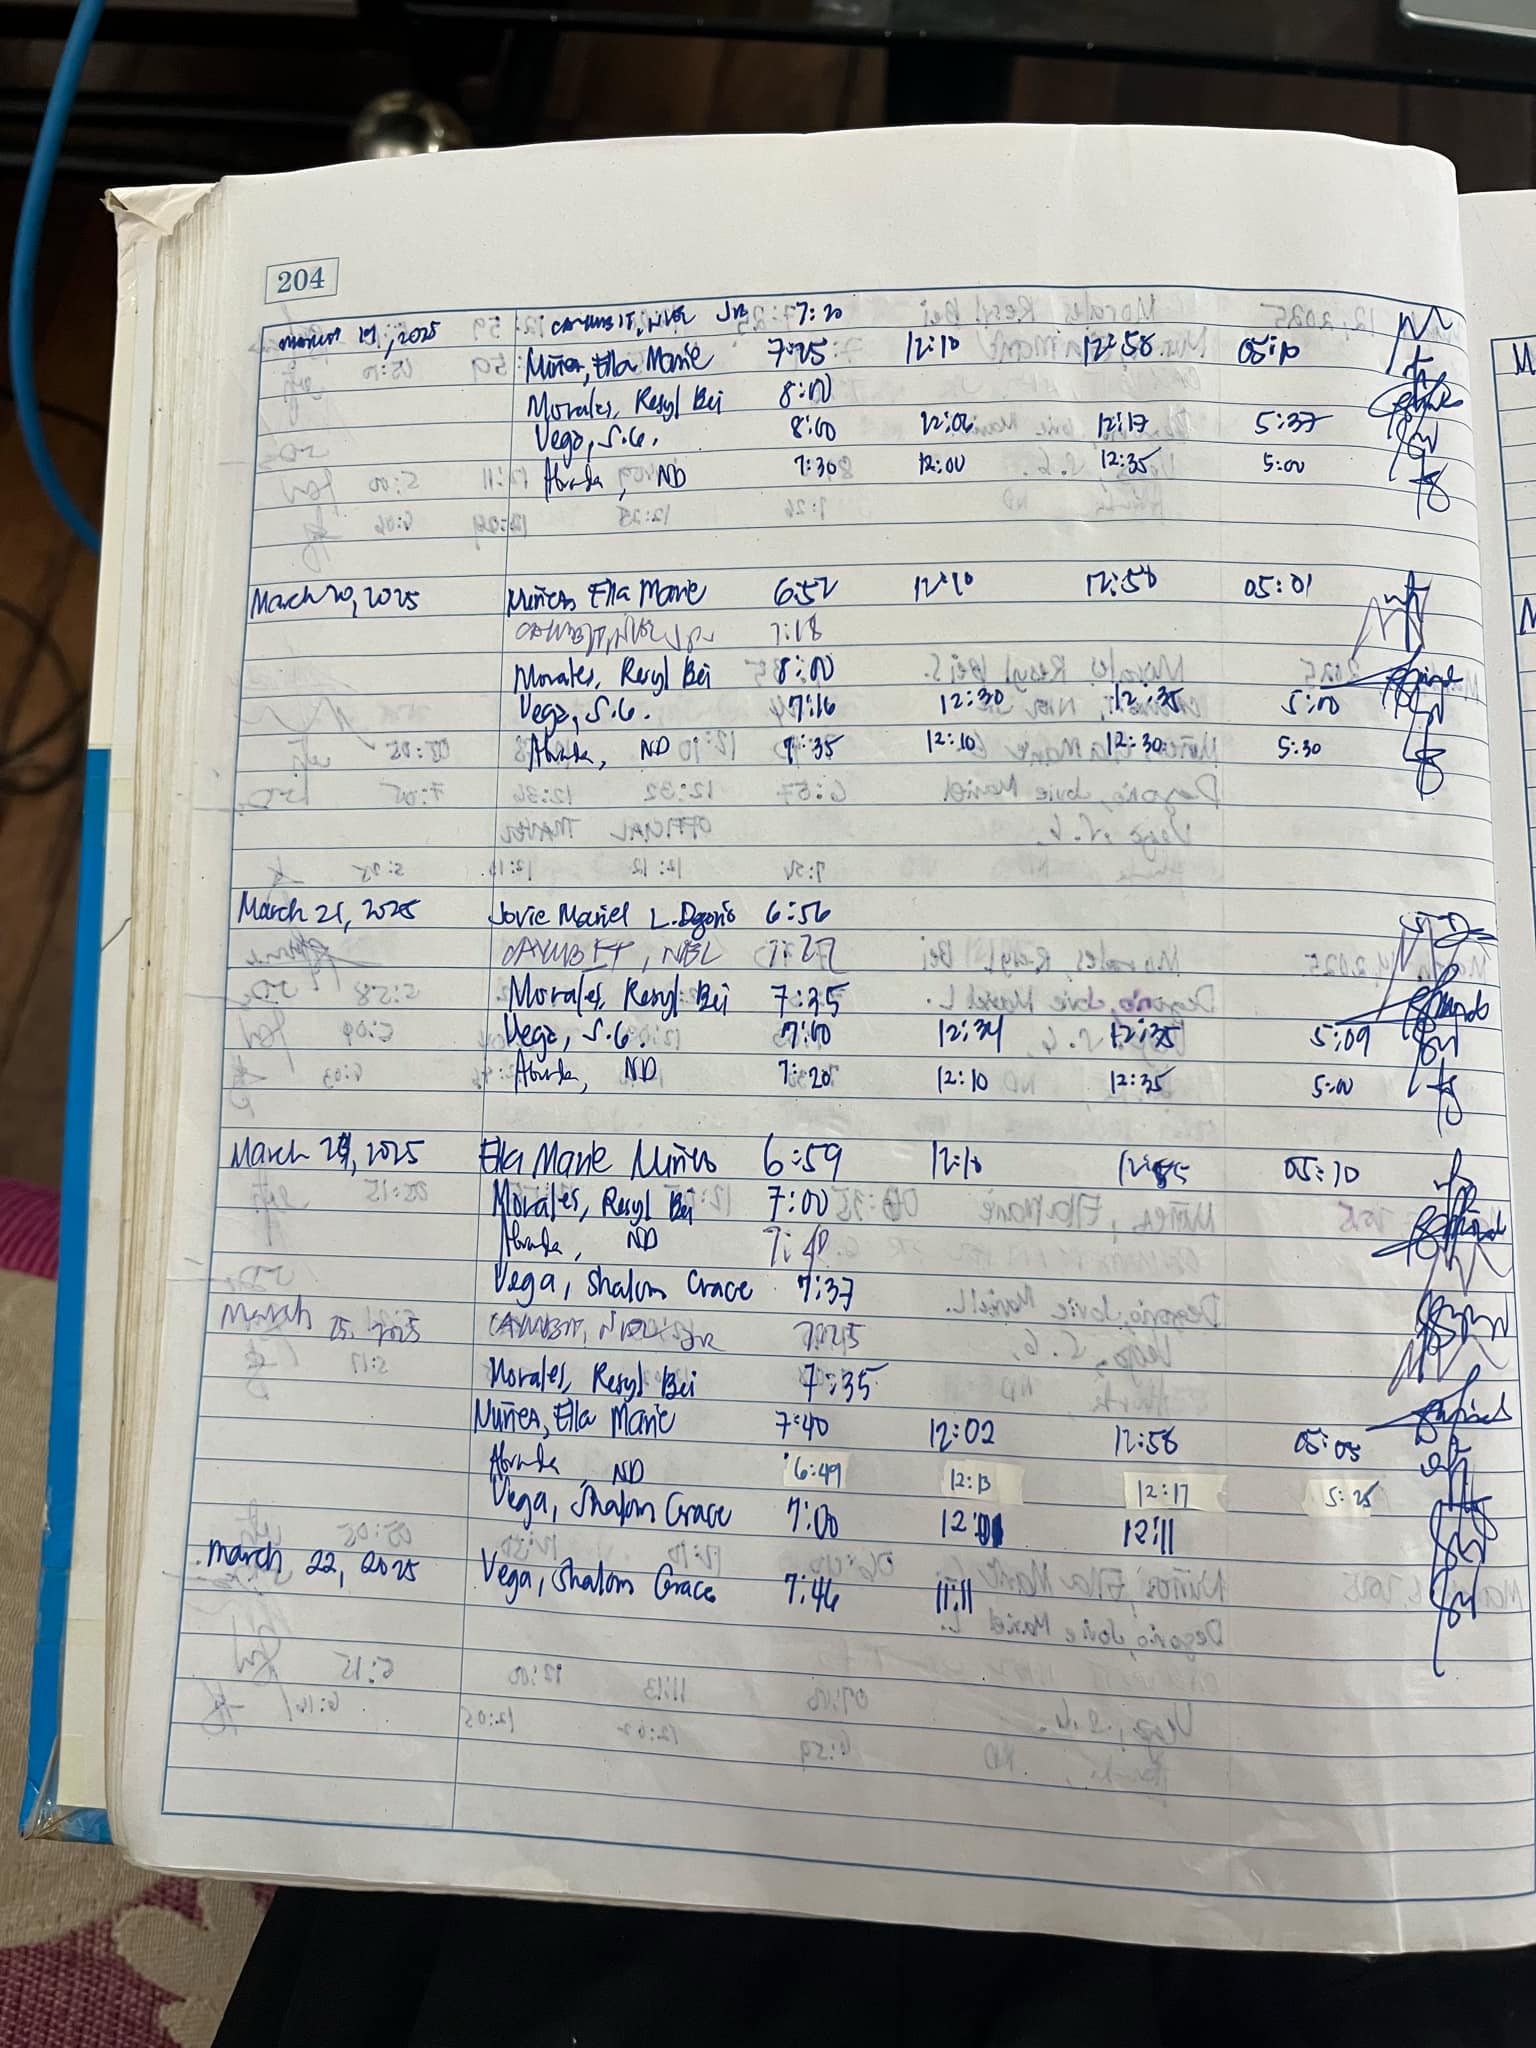 204
March 19, 2025 CAYUBIT, NBL JR 7:20
Nuñes, Ella Marie 7:25 12:10 12:58 05:10
Morales, Resyl Bei 8:00
Vega, S.G. 8:00 12:06 12:17 5:37
ND 7:30 12:00 12:35 5:00
March 20, 2025 Nuñes Ella Marie 6:52 12:10 12:58 05:01
7:18
Morales, Resyl Bei 8:00
Vega, S.G. 7:16 12:30 12:35 5:00
ND 7:35 12:10 12:30 5:30
March 21, 2025 Jovie Mariel L. Degorio 6:56
CAYUBIT, NBL 7:27
Morales, Resyl Bei 7:35
Vega, S.G. 7:00 12:34 12:35 5:09
ND 7:20 12:10 12:35 5:00
March 24, 2025 Ella Marie Nuñes 6:59 12:10 12:55 05:10
Morales, Resyl Bei 7:00
ND 7:40
Vega, Shalom Grace 7:37
March 25, 2025 CAYUBIT, JR 7:25
Morales, Resyl Bei 7:35
Nuñes, Ella Marie 7:40 12:02 12:58 05:05
ND 6:49 12:13 12:17 5:25
Vega, Shalom Grace 7:00 12:01 12:11
March 22, 2025 Vega, Shalom Grace 7:46 11:11